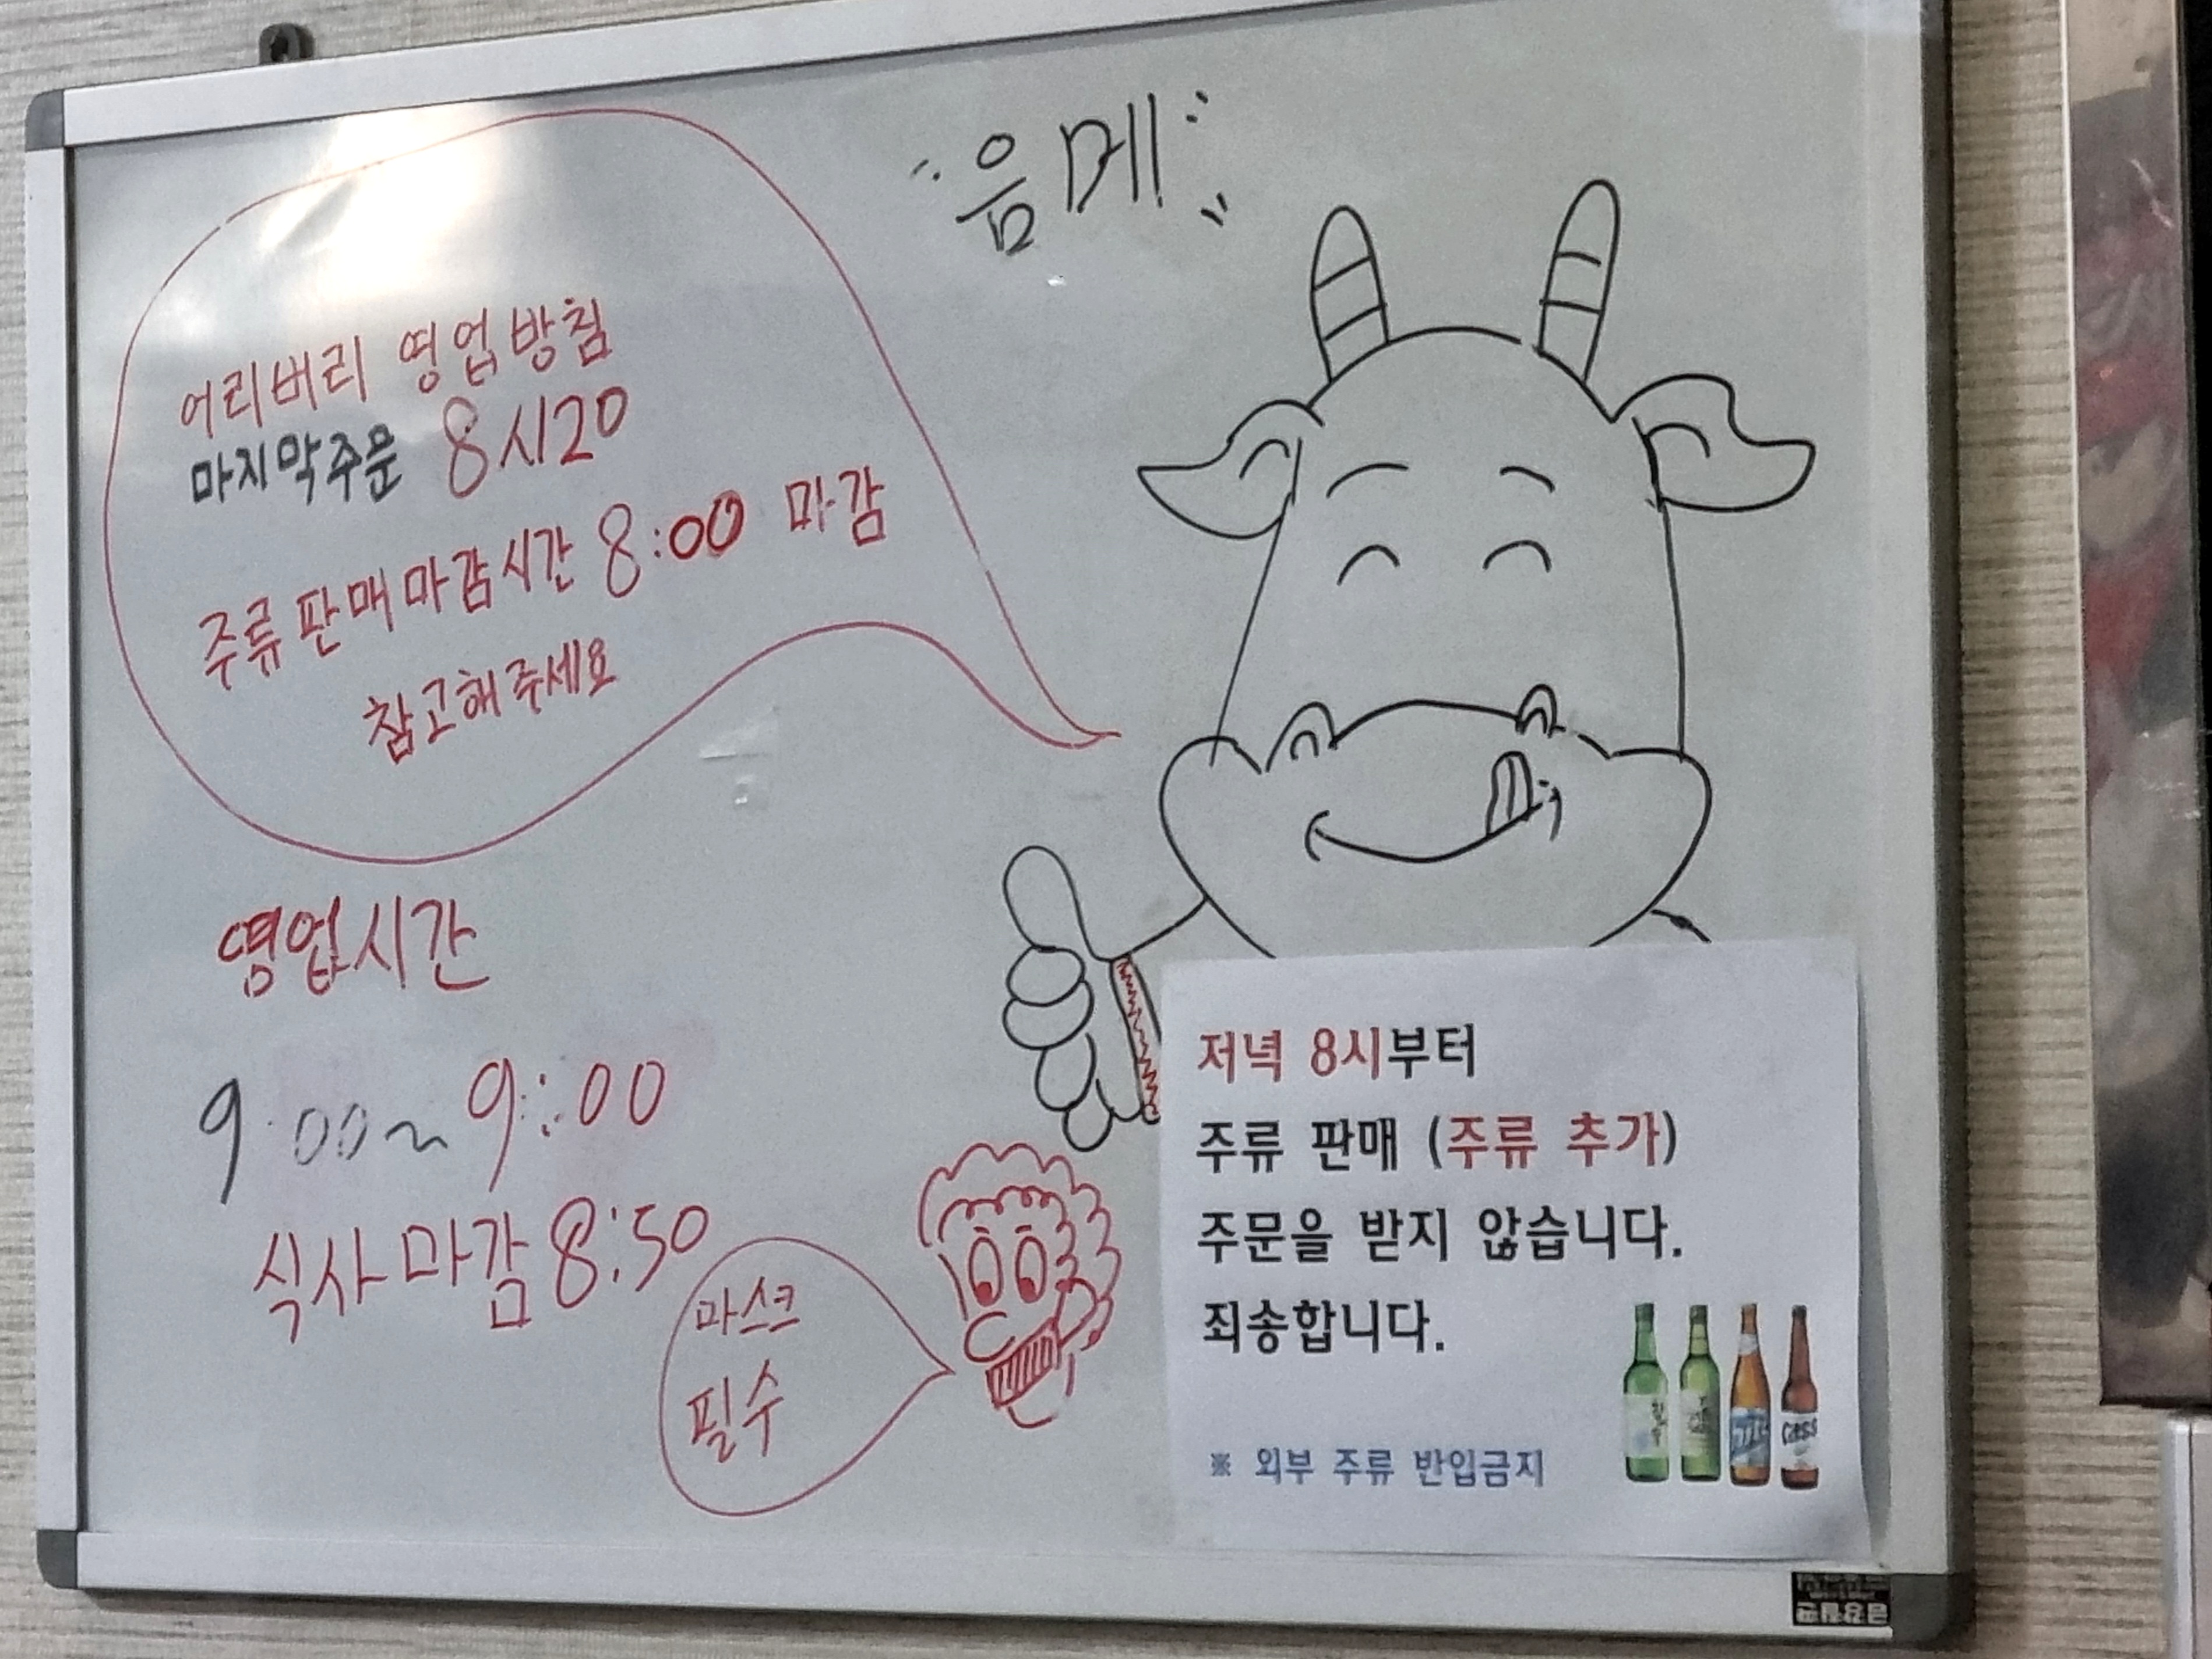 음메
어리버리 영업방침
마지막주문 8시20
주류판매마감시간 8:00 마감
참고해주세요
영업시간
9:00~9:00
식사마감 8:50
마스크
필수
저녁 8시부터
주류 판매 (주류 추가)
주문을 받지 않습니다.
죄송합니다.
※ 외부 주류 반입금지
Cass